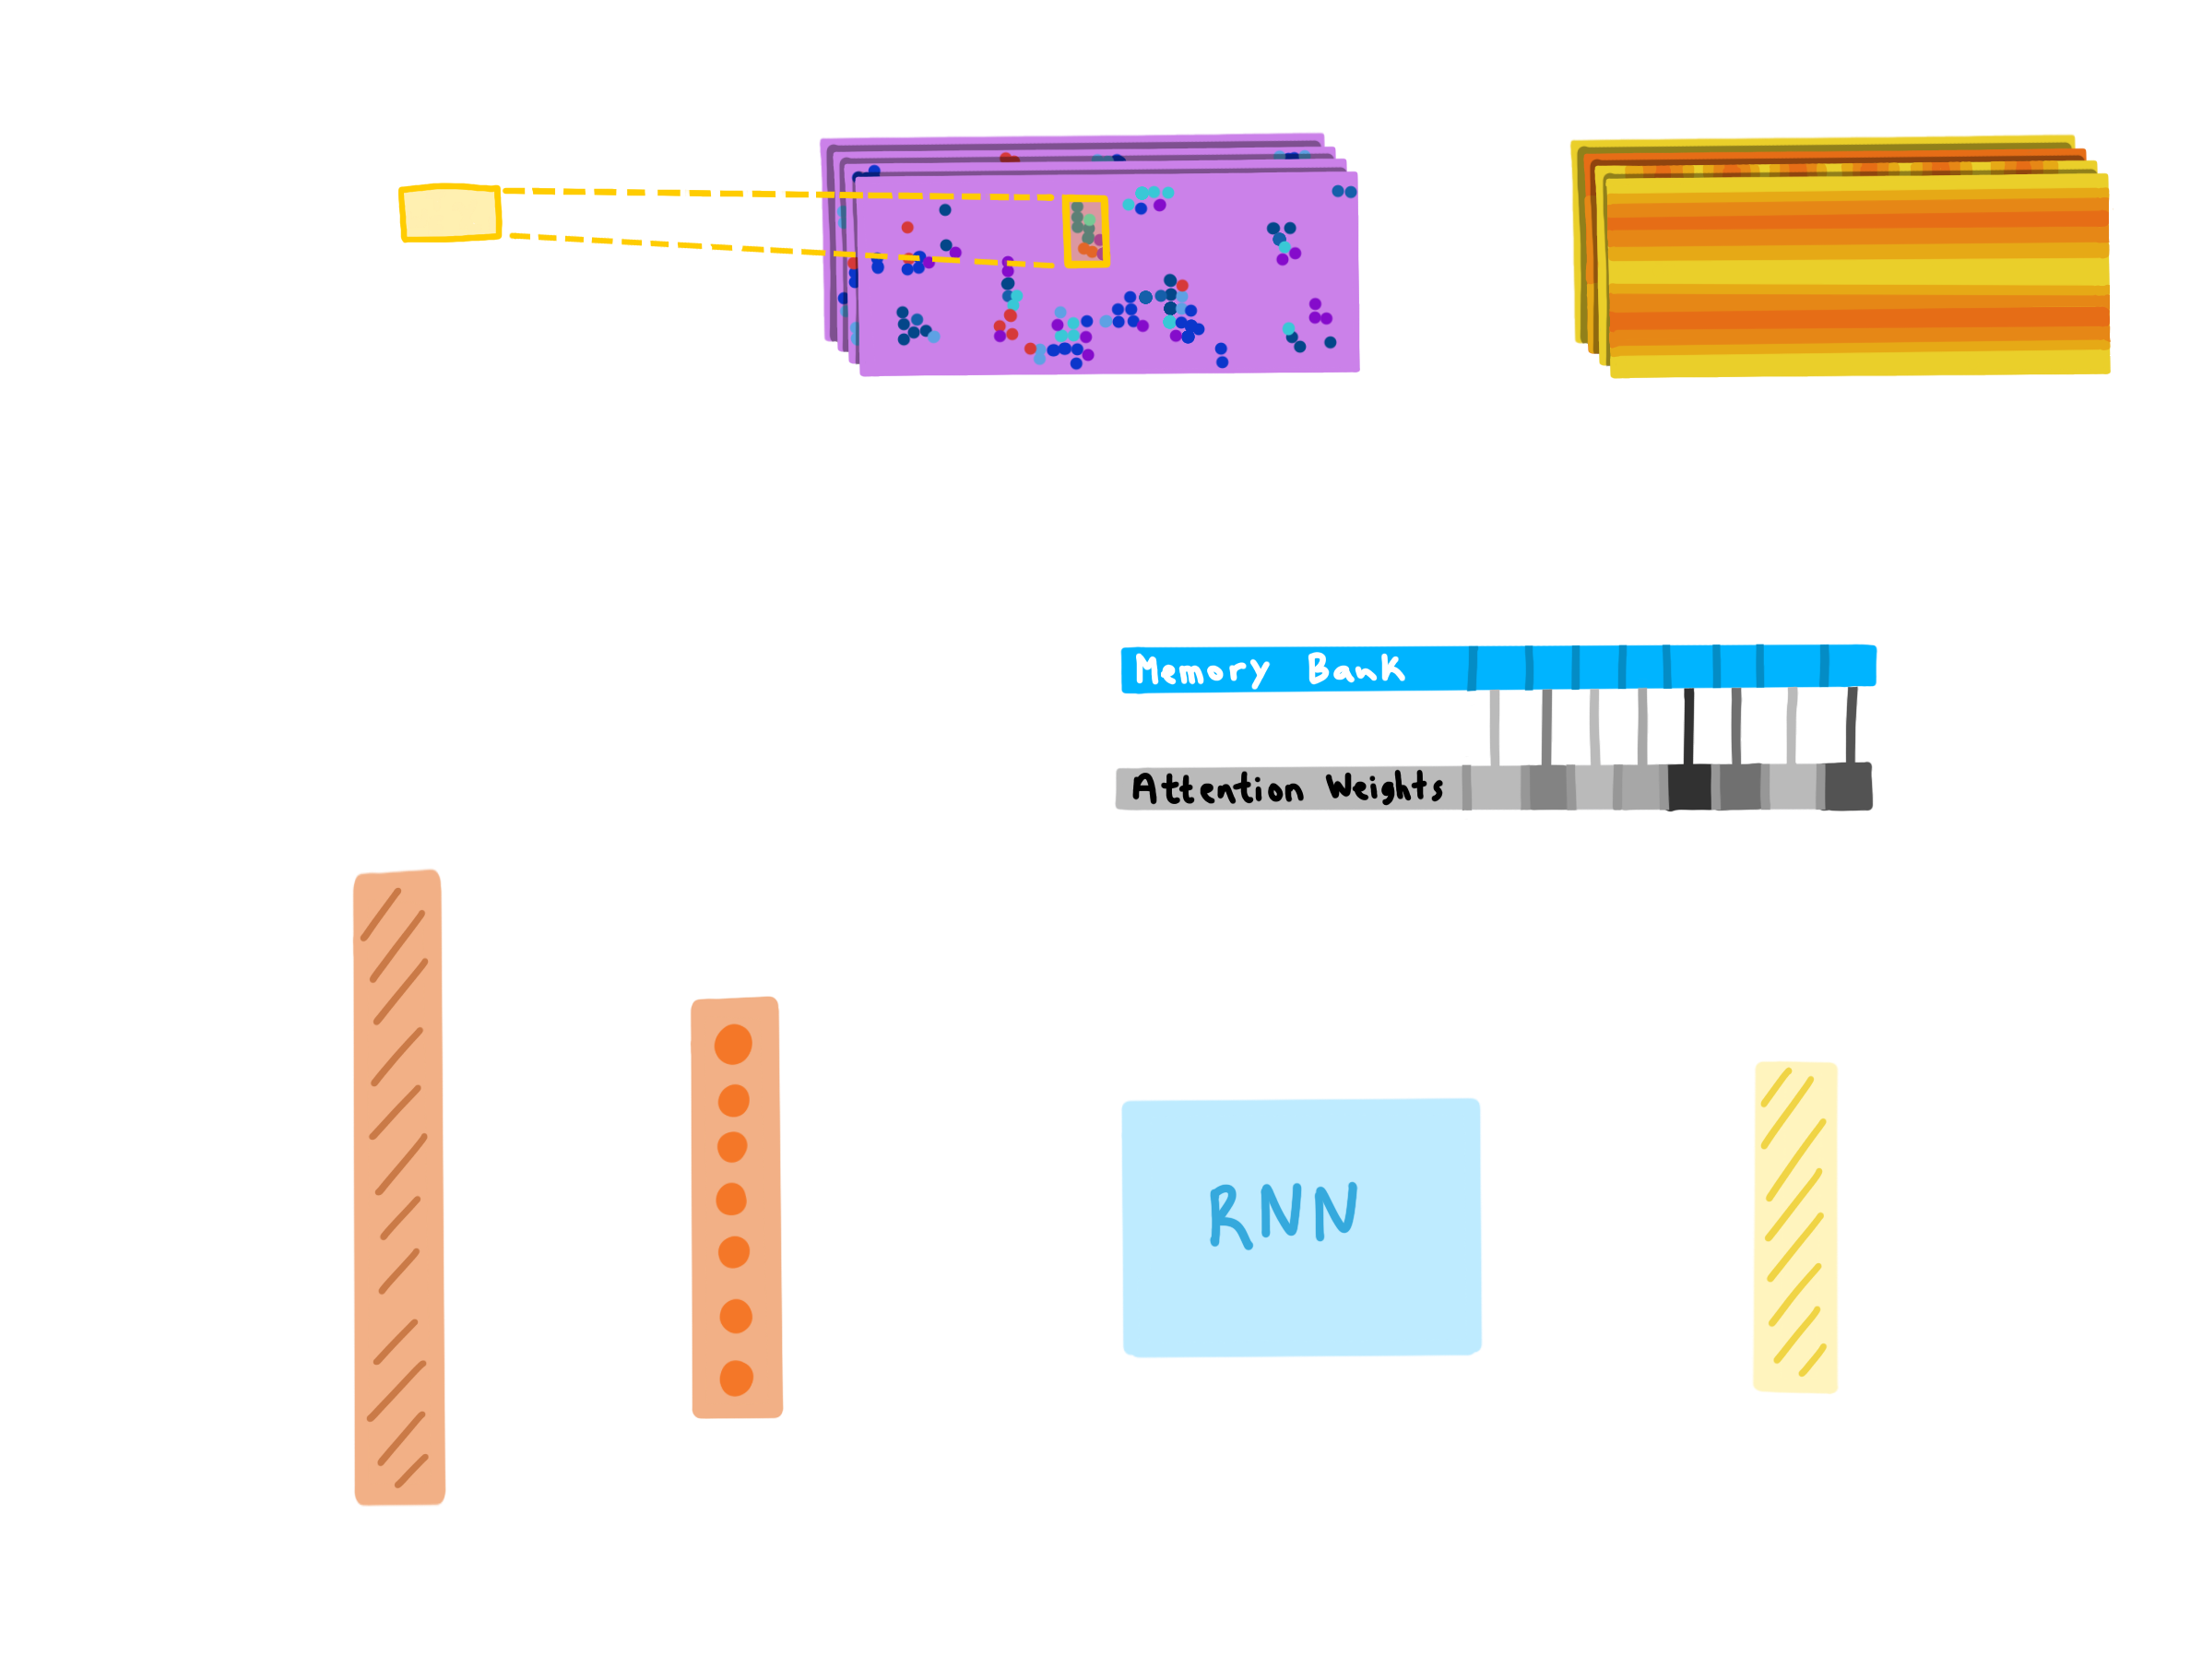 Memory Bank
Attention Weights
RNN